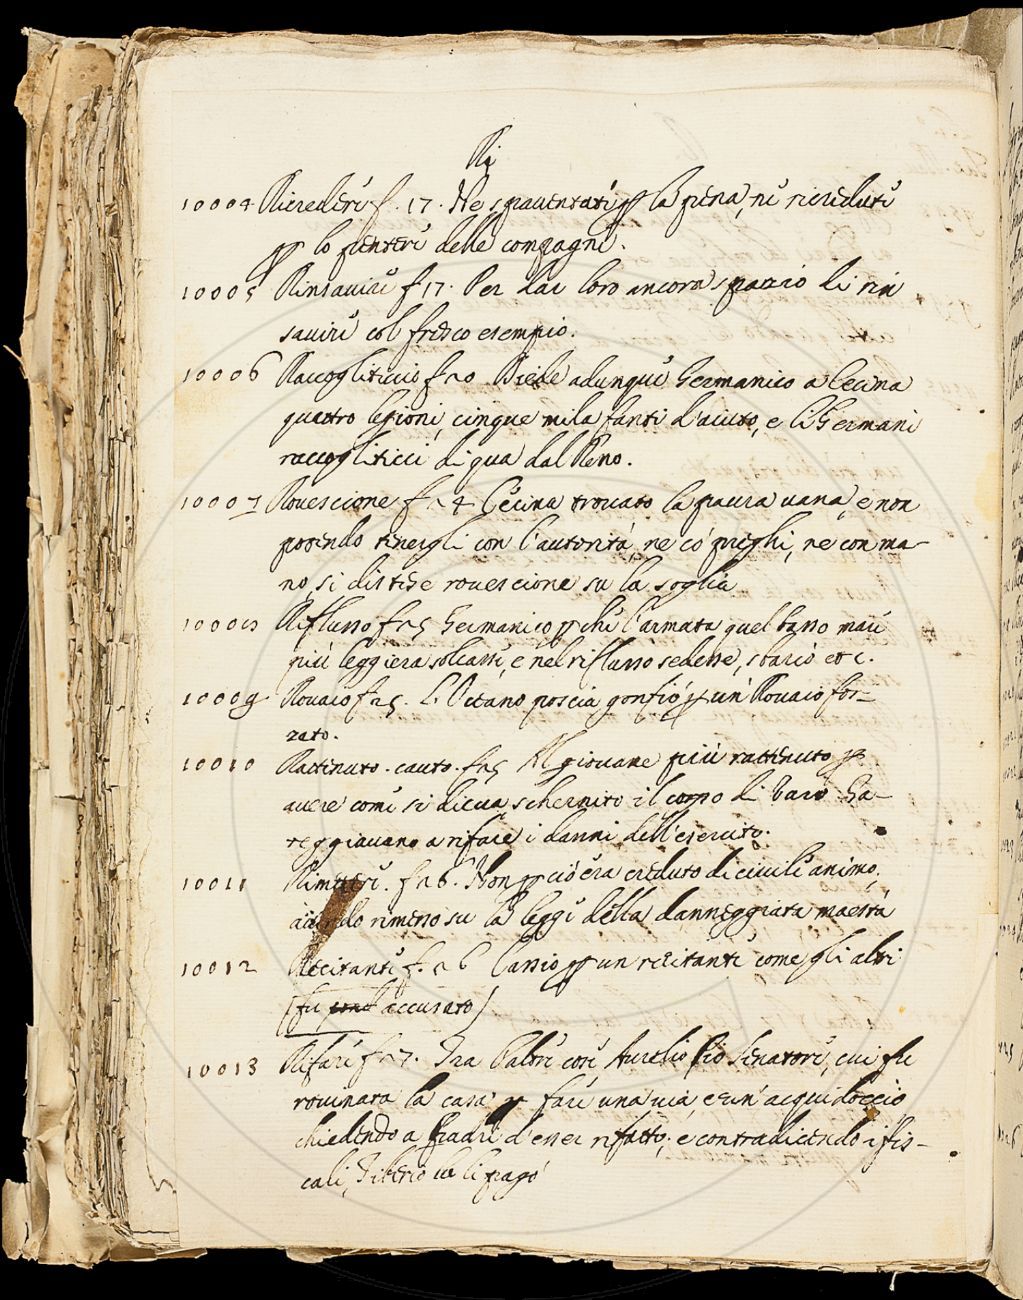 Ri
10004 Ricredersi f. 17. Ne spaventati ꝑ la pena, ne ricreduti
ꝑ lo pentersi delle compagni.
10005 Rinsavire f 17. Per dar loro ancora spazio di rin
savire col fresco esempio.
10006 Raccogliticcio f 20. Diede adunque Germanico a Cecina
quattro legioni, cinque mila fanti d'aiuto, e li Germani
raccogliticci di qua dal Reno.
10007 Rovescione f 24 Cecina trovato la paura vana, e non
potendo tenergli con l'autorità, ne co' preghi, ne con ma-
no si distese rovescione su la soglia
10008 Riflusso f 25 Germanico ꝑche l'armata quel basso mare
più leggiera solcasse, e nel riflusso sedesse, scaricò etc.
10009 Rovaio f 25. L'Oceano poscia gonfiò ꝑ un Rovaio for-
zato.
10010 Rattenuto. cauto. f 25 Al giovane più rattenuto ꝑ
avere come si diceva schernito il corpo di Varo Ga-
reggiavano a rifare i danni dell'esercito.
10011 Rimettere. f 26. Non ꝑ ciò era creduto di civile animo,
avendo rimesso su la legge della danneggiata maestà
10012 Recitante f. 26 Cassio ꝑ un recitante come gli altri
(fu accusato)
10013 Rifare f 27. Tra Paltri così Aurelio Pio Senatore, cui fu
rovinata la casa ꝑ fare una via, e un acquidoccio
chiedendo a Padri d'esser rifatto, e contradicendo i fis-
cali, Tiberio la li pagò